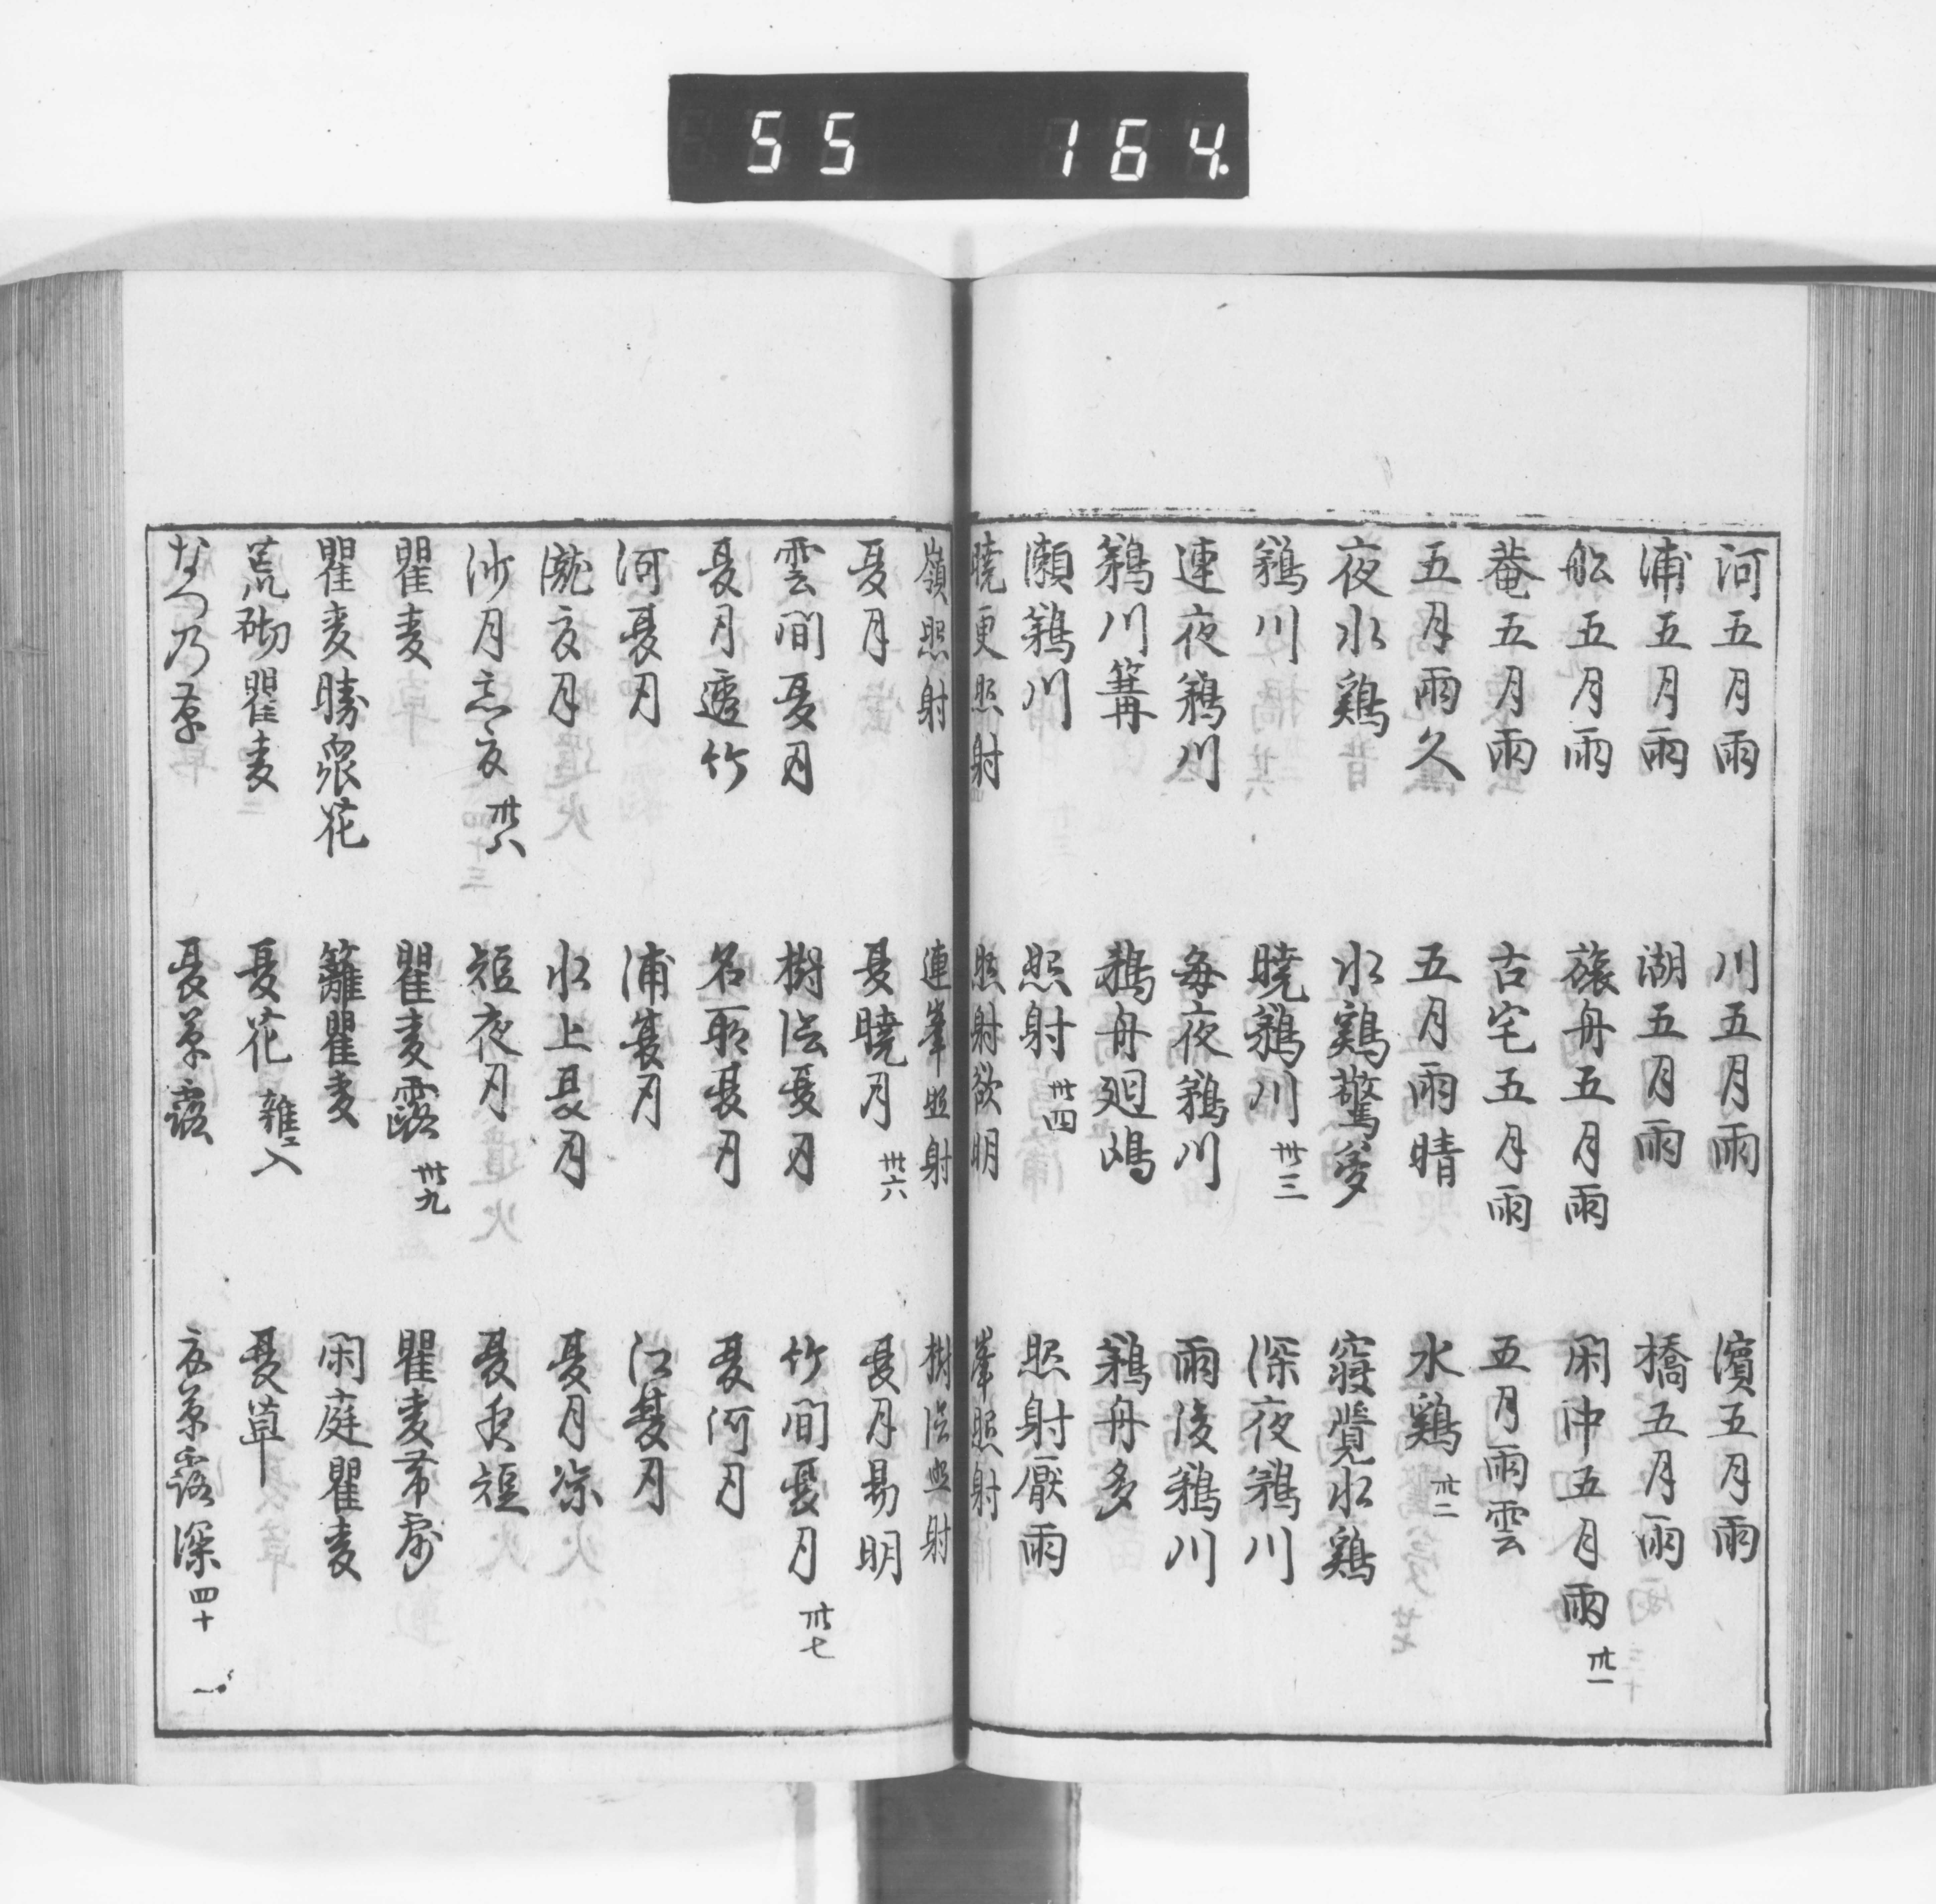 55 164
河五月雨 川五月雨 濱五月雨
浦五月雨 湖五月雨 橋五月雨
舩五月雨 旅舟五月雨 閑中五月雨 卅一
菴五月雨 古宅五月雨 五月雨雲
五月雨久 五月雨晴 水鶏 卅二
夜水鶏 水鶏驚夢 寤覺水鶏
鵜川 曉鵜川 卅三 深夜鵜川
連夜鵜川 毎夜鵜川 雨後鵜川
鵜川篝 鵜舟廻嶋 鵜舟多
瀬鵜川 照射 卅四 照射厭雨
曉更照射 照射欲明 峯照射
嶺照射 連峯照射 樹陰照射
夏月 夏曉月 卅六 夏月易明
雲間夏月 樹陰夏月 竹間夏月 卅七
夏月透竹 名所夏月 夏河月
河夏月 浦夏月 江夏月
瀧夏月 水上夏月 夏月涼
沙月忘夏 卅八 短夜月 夏夜短
瞿麦 瞿麦露 卅九 瞿麦帯露
瞿麦勝衆花 籬瞿麦 閑庭瞿麦
荒砌瞿麦 夏花 雑ニ入 夏草
なつ乃草 夏草露 夏草露深 四十